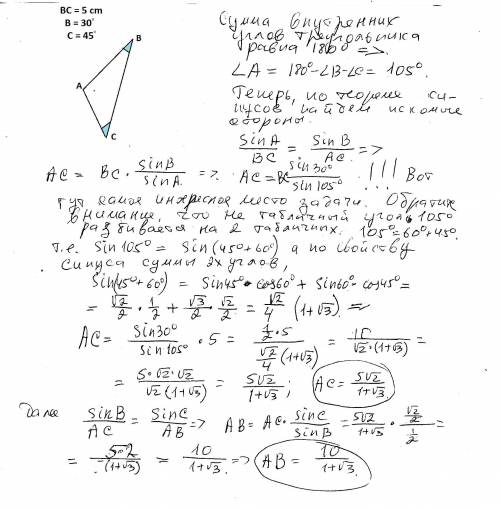 BC = 5 cm
B = 30°
C = 45°
B
A
C
Сумма внутренних
углов треугольника
равна 180° =>.
∠A = 180° - ∠B - ∠C = 105°.
Теперь, по теореме си-
нусов найдем искомые
стороны.
sinA/BC = sinB/AC =>
AC = BC · sinB/sinA => AC = BC sin30°/sin105° !!! Вот
тут самое интересное место задачи. Обратим
внимание, что не табличный угол 105°
разбивается на 2 табличных. 105° = 60° + 45°.
т.е. sin105° = sin(45° + 60°) а по свойству
синуса суммы 2х углов,
sin(45° + 60°) = sin45° · cos60° + sin60° · cos45° =
= √2/2 · 1/2 + √3/2 · √2/2 = √2/4 (1+√3). =>
AC = sin30°/sin105° · 5 = (1/2 · 5)/(√2/4 (1+√3)) = 10/(√2 · (1+√3)) =
= 5·√2·√2/(√2(1+√3)) = 5√2/(1+√3); AC = 5√2/(1+√3)
Далее sinB/AC = sinC/AB => AB = AC · sinC/sinB = 5√2/(1+√3) · (√2/2)/(1/2) =
= 5·2/(1+√3) = 10/(1+√3) => AB = 10/(1+√3).